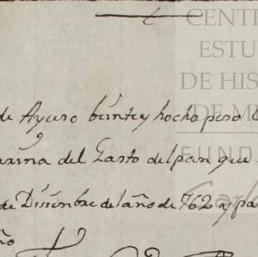 CENT
ESTU
DE HIS
DE M
FUND
de Ayuso beinte y hocho peso
arina del Gasto del pan que
de Disiembre del año de 762 y pa
ño